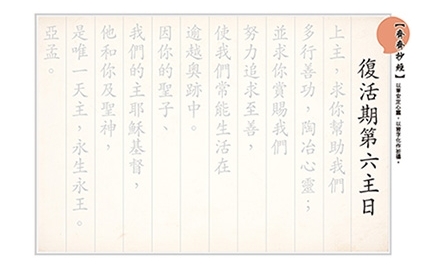 【齊齊抄經】
以筆安定心靈，以書字化作祈禱。
復活期第六主日
上主，求你幫助我們
多行善功，陶冶心靈；
並求你賞賜我們
努力追求至善，
使我們常能生活在
逾越奧跡中。
因你的聖子、
我們的主耶穌基督，
他和你及聖神，
是唯一天主，永生永王。
亞孟。